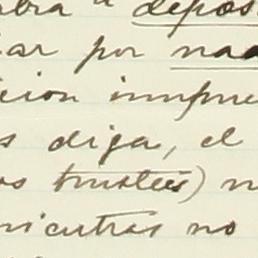 abra a depos
iar por nad
icion inmpre
s diga, el
os trustees) n
mientras no